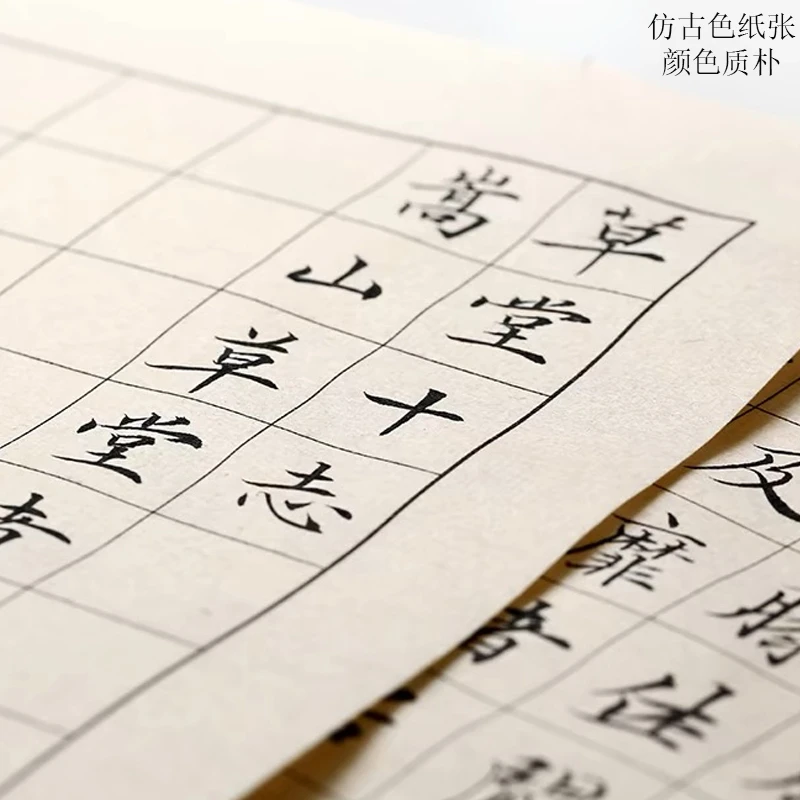 仿古色纸张
颜色质朴
草堂十志
嵩山草堂者
及
靡
者